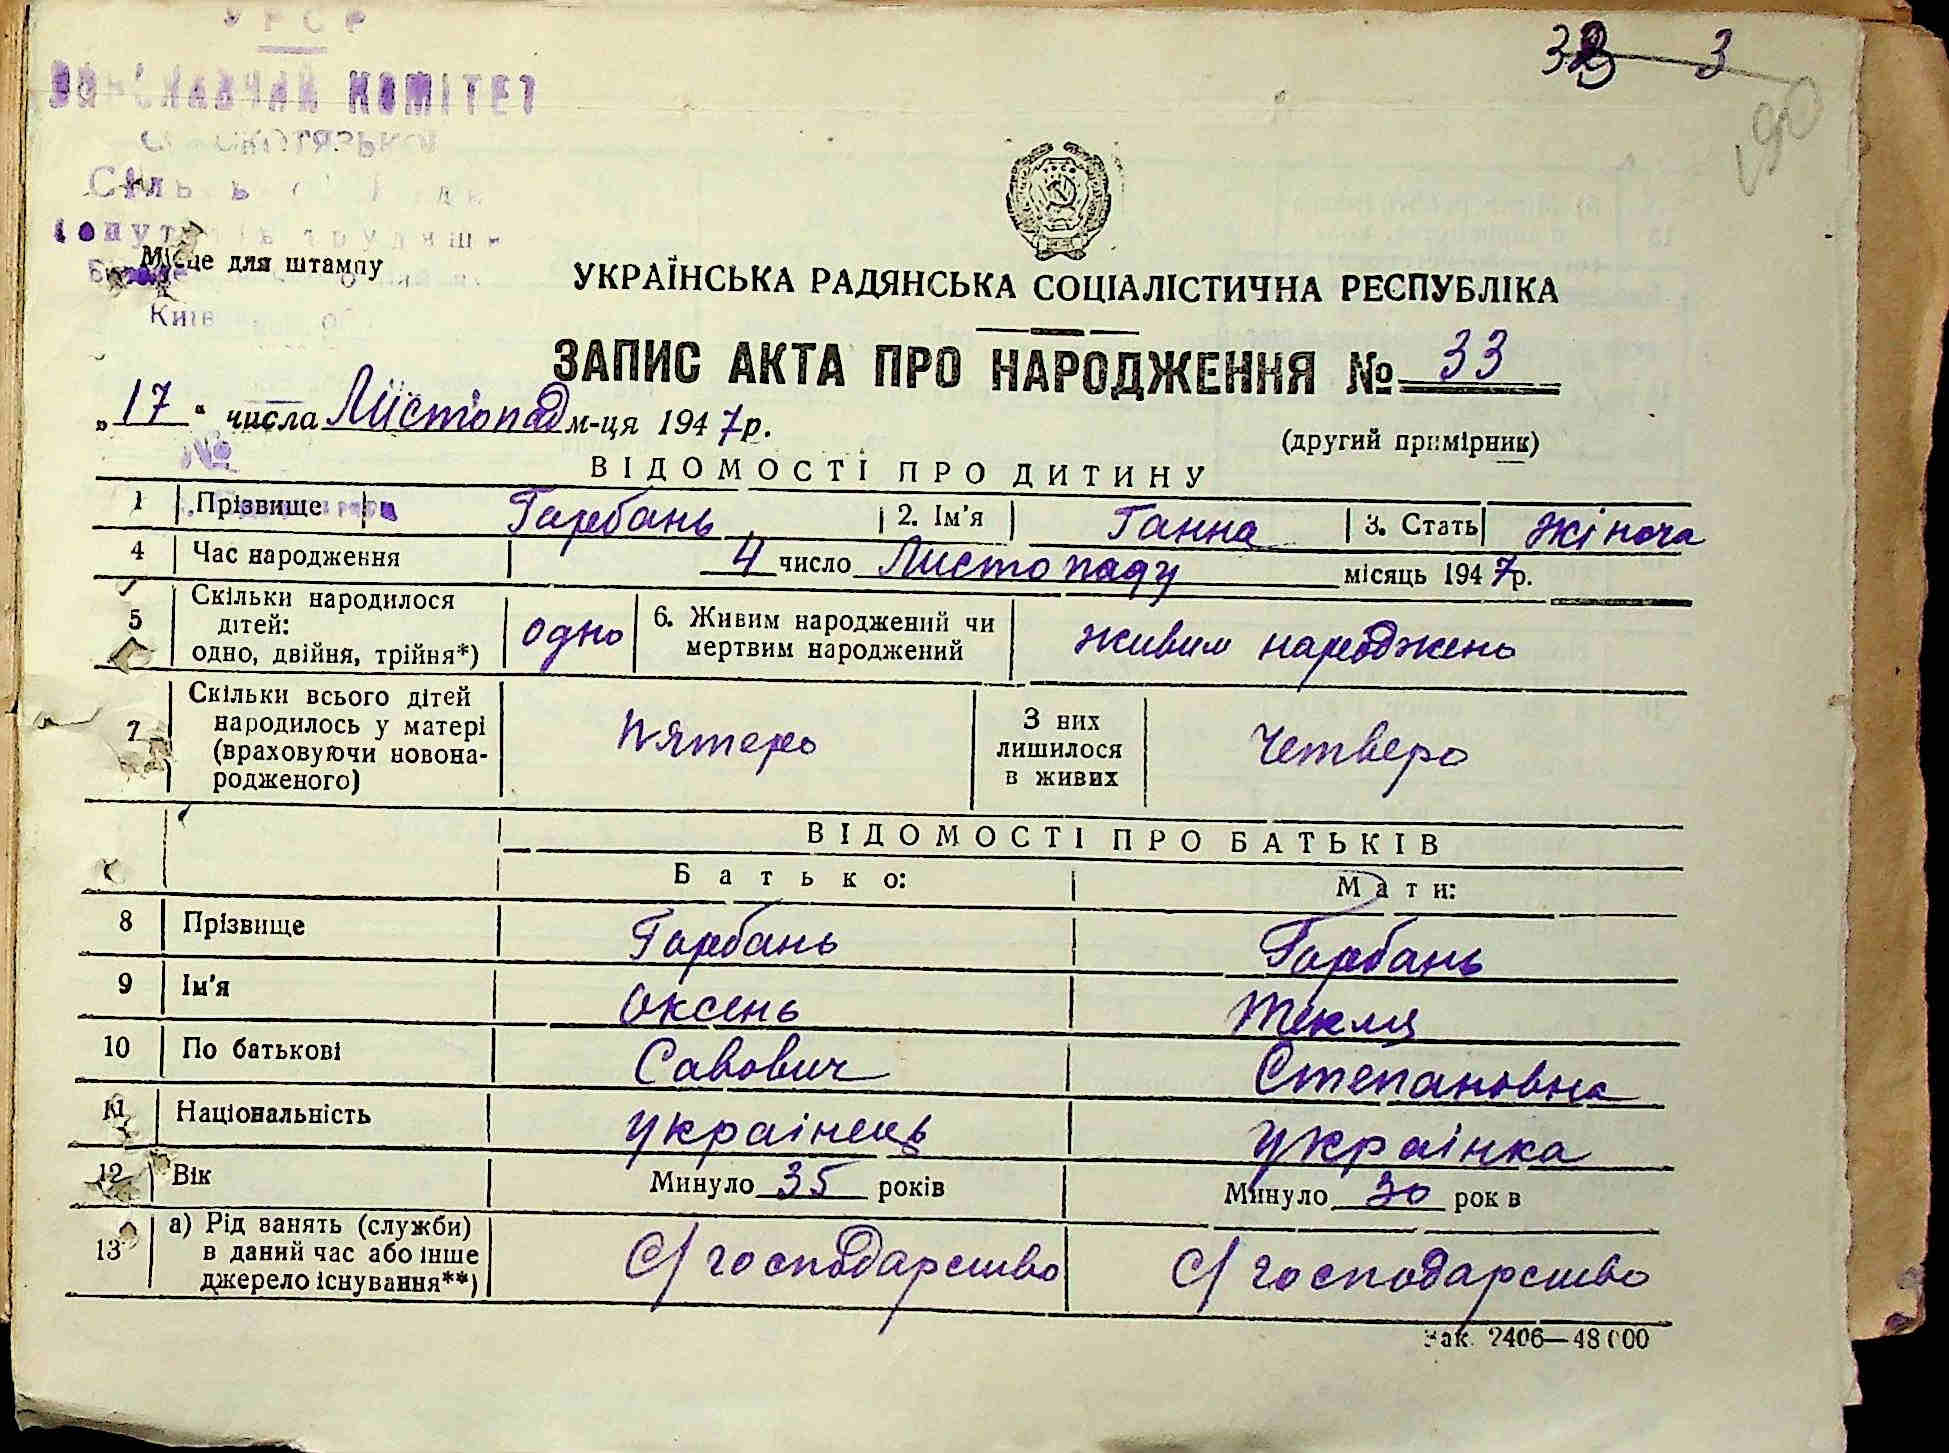 УРСР
КОМІТЕТ
33 3
190
Місце для штампу
Київ
УКРАЇНСЬКА РАДЯНСЬКА СОЦІАЛІСТИЧНА РЕСПУБЛІКА
ЗАПИС АКТА ПРО НАРОДЖЕННЯ № 33
„17“ числа Листопад м-ця 1947р.
(другий примірник)
№
ВІДОМОСТІ ПРО ДИТИНУ
1 Прізвище Горбань 2. Ім'я Ганна 3. Стать жіноча
4 Час народження 4 число Листопаду місяць 1947р.
5 Скільки народилося дітей: одно, двійня, трійня*) одно 6. Живим народжений чи мертвим народжений живим народжень
7 Скільки всього дітей народилось у матері (враховуючи новонародженого) п'ятеро З них лишилося в живих Четверо
ВІДОМОСТІ ПРО БАТЬКІВ
Батько: Мати:
8 Прізвище Горбань Горбань
9 Ім'я Оксень Текля
10 По батькові Савович Степановна
11 Національність українець українка
12 Вік Минуло 35 років Минуло 30 рок в
13 а) Рід занять (служби) в даний час або інше джерело існування**) С/господарство С/господарство
Зак. 2406—48 000